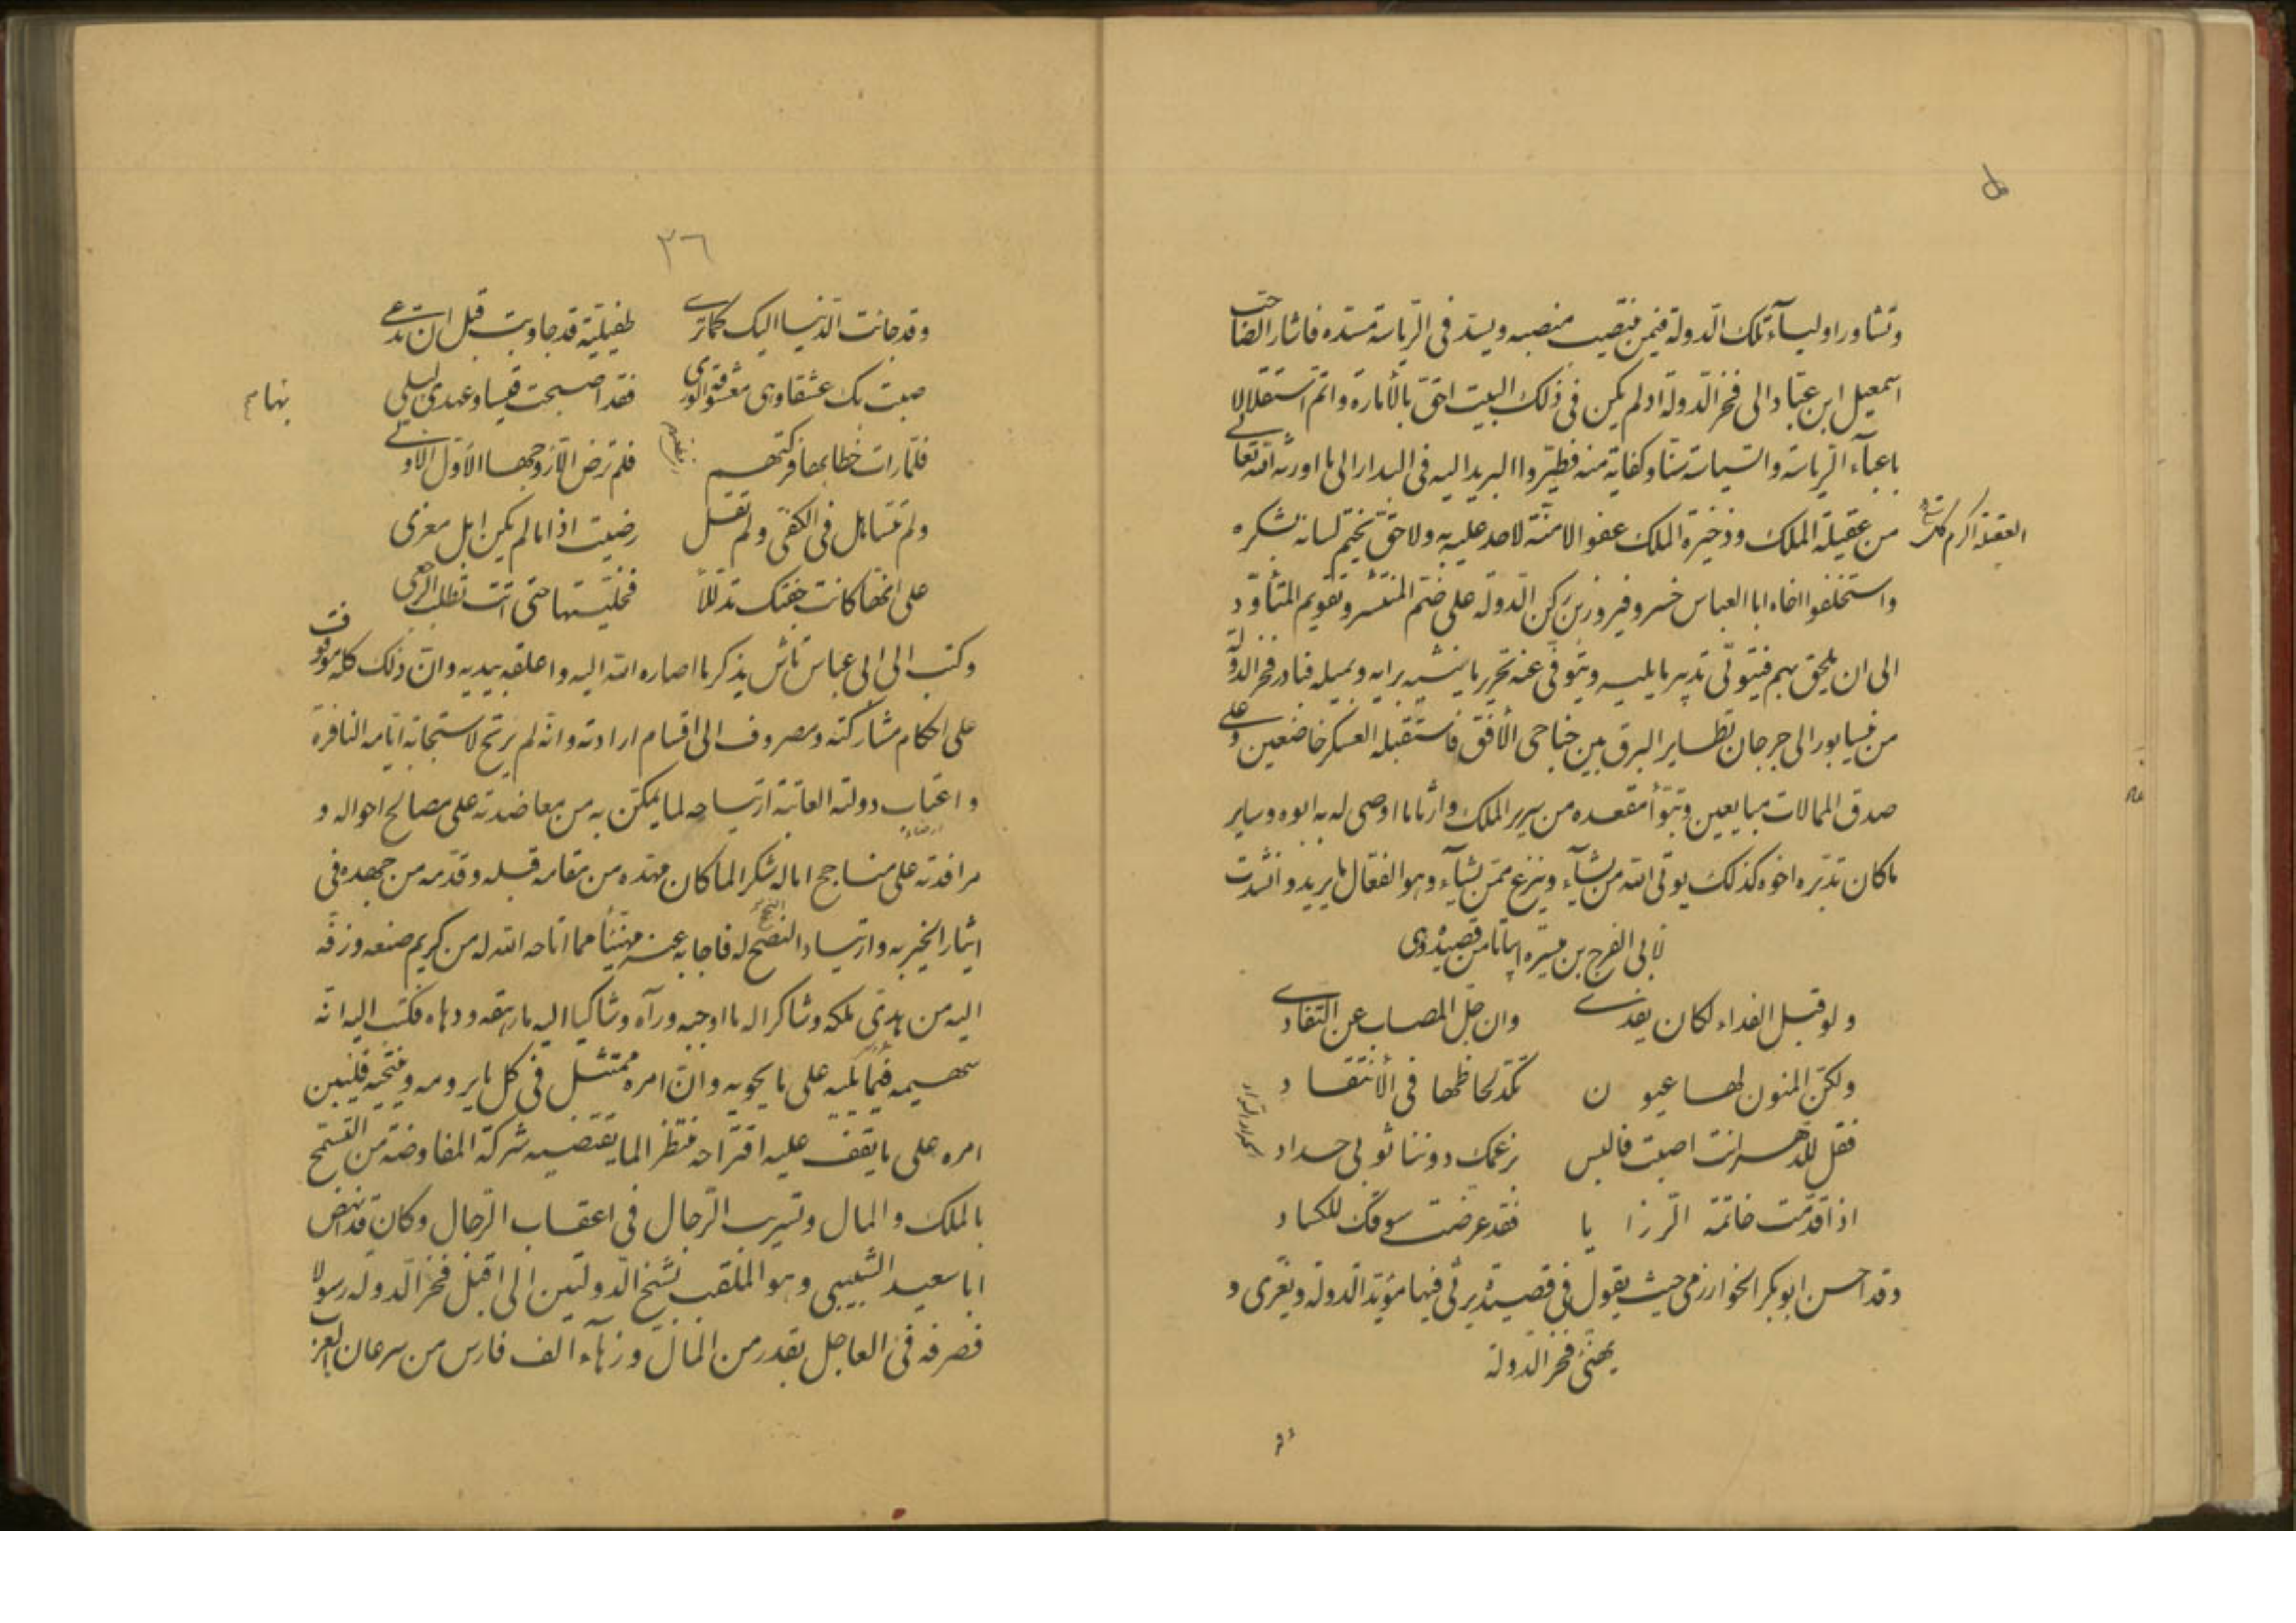 وتشاور اولیآء تلک الدولة فیمن ینتصب منصبه ویسد فی الریاسة مسده فاشار الصاحب
اسمعیل ابن عباد الی فخر الدولة اذ لم یکن فی ذلک البیت احق بالأمارة واتم استقلالا
باعبآء الریاسة والسیاسة سنا وکفایة منه فطیروا البرید الیه فی البدار الی ما اورثه الله تعالی
من عقیلة الملک وذخیرة الملک عفو الامنة لاحد علیه به ولا حق یختم لسانه بشکره
واستخلفوا اخاه ابا العباس خسرو فیروز بن رکن الدولة علی ضم المنتشر وتقویم المتأود
الی ان یلحق بهم فیتولی تدبیر ما یلیه ویتوفی عنه تحریر ما ینشیه برایه ویمیله فبادر فخر الدولة
من نیسابور الی جرجان تطایر البرق بین جناحی الأفق فاستقبله العسکر خاضعین وعلی
صدق الممالات مبایعین وتبوأ مقعده من سریر الملک وارثا ما اوصی له به ابوه وسایر
ما کان تدبره اخوه کذلک یوتی الله من یشآء وینزع ممن یشآء وهو الفعال لما یرید وانشدت
لابی الفرج بن میسرة ابیاتا من قصیدة وهی
ولو قبل الفداء لکان یفدی وان جل المصاب عن التفادی
ولکن المنون لها عیون تکد لحاظها فی الأنتقاد
فقل للدهر انت اصبت فالبس برغمک دوننا ثوبی حداد
اذا قدمت خاتمة الرزایا فقد عرضت سوقک للکساد
وقد احسن ابو بکر الخوارزمی حیث یقول فی قصیدة یرثی فیها مؤید الدولة ویعزی و
یهنئ فخر الدولة
٣٦
وقد جانت الدنیا الیک کما تری طفیلیة قد جاوبت قبل ان تدعی
صبت بک عشقا وهی معشوقة الوری فقد اصبحت قیسا وعهدی بلیلی
فلما رات خطابها فرکتهم فلم ترض الا زوجها الأول الاولی
ولم تتساهل فی الکفی ولم تقل رضیت اذا ما لم یکن ابل معزی
علی انها کانت جفتک تدللا فخلیتها حتی اتت تطلب الرجعی
وکتب الی ابی عباس تاش یذکر ما اصاره الله الیه واعلقه بیدیه وان ذلک کله موقوف
علی احکام مشارکته ومصروف الی اقسام ارادته وانه لم یرتح لاستجابة ایامه النافرة
واعتاب دولته العاتبة ارتیاحه لما یمکن به من معاضدته علی مصالح احواله و
مرافدته علی مناجح اماله شکرا لما کان مهده من مقامه قبله وقدمه من جهده فی
ایثار الخیر به وارتیاد النصح له فاجابه عنه مهنئا مما اتاحه الله له من کریم صنعه وزفه
الیه من هدی ملکه وشاکرا له ما اوجبه ورآه وشاکیا الیه ما رهقه ودهاه فکتب الیه انه
سهیمه فیما یلیه علی ما یحویه وان امره ممتثل فی کل ما یرومه وینتحیه فلیبن
امره علی ما یقف علیه اقتراحه منتظرا لما یقتضیه شرکة المفاوضة من التسمح
بالملک والمال وتسریب الرجال فی اعقاب الرجال وکان قد انهض
ابا سعید الشبیبی وهو الملقب بشیخ الدولتین الی قبل فخر الدولة رسولا
فصرفه فی العاجل بقدر من المال وزهآء الف فارس من سرعان العرب